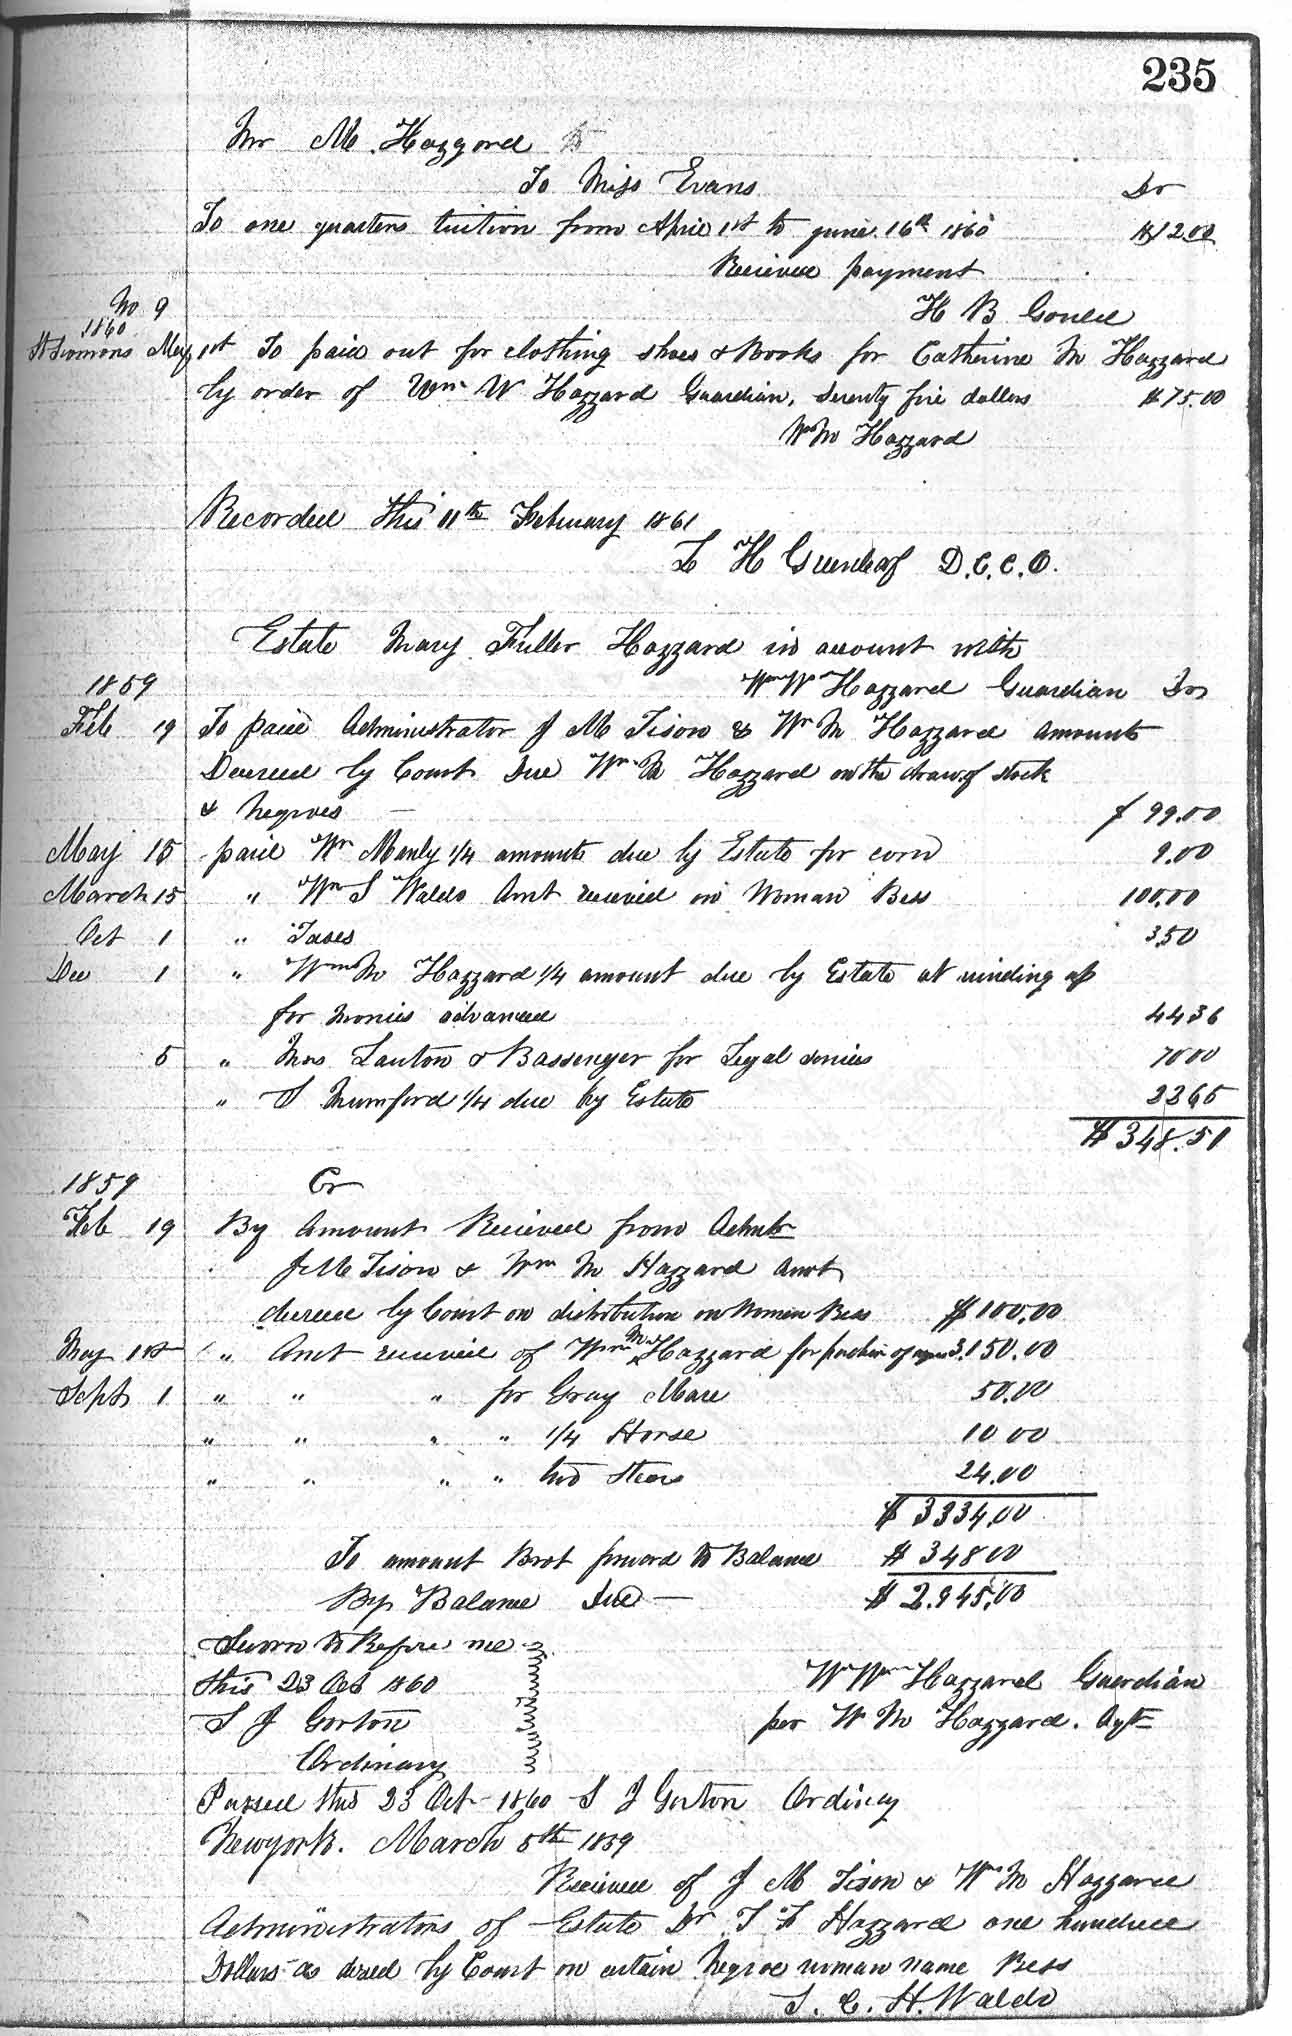 235
Mr M. Hazzard
To Miss Evans Dr
To one quarters tuition from April 1st to June 16th 1860 $12.00
Recieved payment
H B Gould
No 9
1860
St Simons May 1st To paid out for clothing shoes & Books for Catherine M Hazzard
by order of Wm W Hazzard Guardian, Seventy five dollars $75.00
Wm M Hazzard
Recorded this 11th February 1861
L H Greenleaf D.C.C.O.
Estate Mary Fuller Hazzard in account with
1859 Wm W Hazzard Guardian Dr
Feb 19 To paid Administrator J M Tison & Wm M Hazzard amount
Decreed by Court Due Wm M Hazzard on the draw of stock
& Negroes — $ 99.00
May 15 paid Wm Manly 1/4 amount due by Estate for corn 9.00
March 15 " Wm S Waldo Amt received on Woman Bess 100.00
Oct 1 " Taxes 3.50
Dec 1 " Wm M Hazzard 1/4 amount due by Estate at winding up
for Monies advanced 4436
5 " Mrs Lawton & Bassenger for Legal servies 7000
" S Mumford 1/4 due by Estate 2265
$ 348.51
1859 Cr
Feb 19 By Amount Recieved from Admtr
J M Tison & Wm M Hazzard Amt
decreed by Court on distribution on Women Bess $ 100.00
May 1st " Amt received of Wm M Hazzard for portion of 3.150.00
Sept 1 " " " for Gray Mare 50.00
" " " " 1/4 Horse 10 00
" " " " two Steers 24.00
$ 3334.00
To amount Brot forward to Balance $ 348 00
By Balance Due — $ 2.945.00
Sworn to Before me
this 23 Oct 1860 Wm Wm Hazzard Guardian
S J Gorton per W M Hazzard. Agt
Ordinary
Passed this 23 Oct - 1860 S J Gorton Ordinary
Newyork. March 5th 1859
Recieved of J M Tison & Wm M Hazzard
Administrators of Estate Dr T F Hazzard one hundred
Dollars as decreed by Court on certain Negroe woman name Bess
S. C. H. Waldo